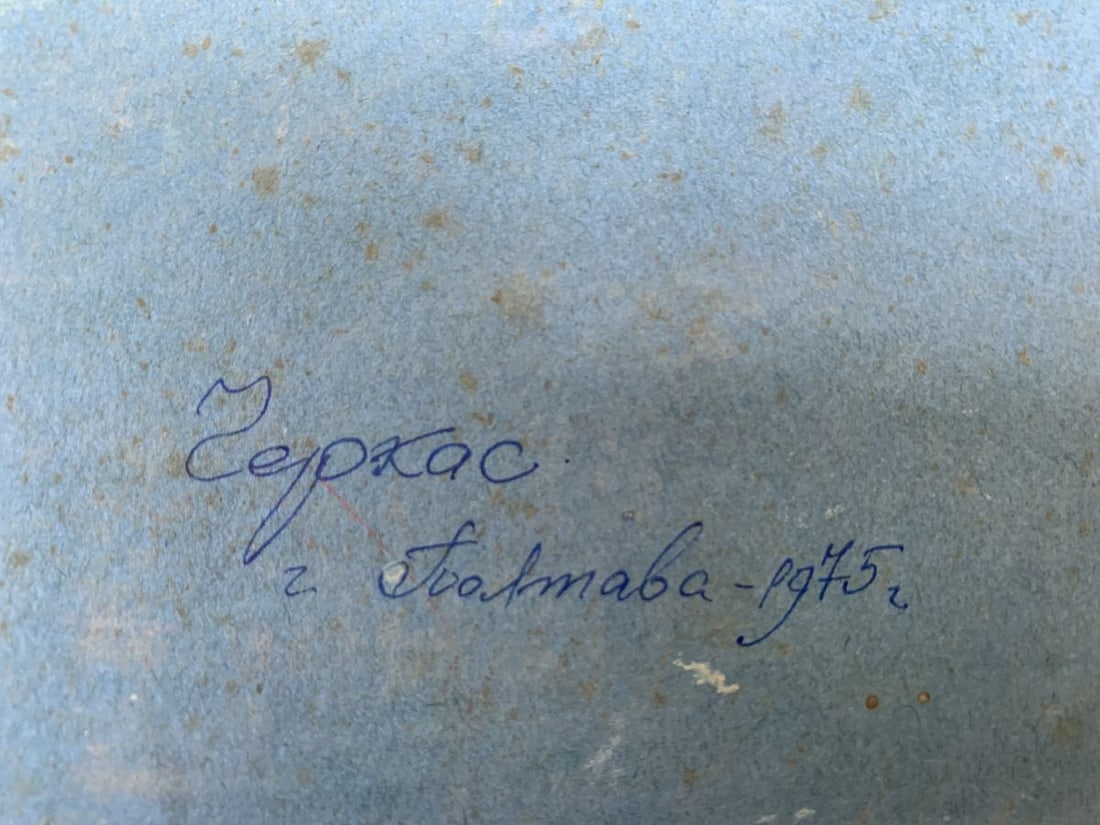 Черкас.
г. Полтава - 1975 г